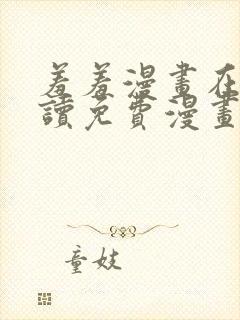 羞羞漫畫在
讀免費漫畫
童妓